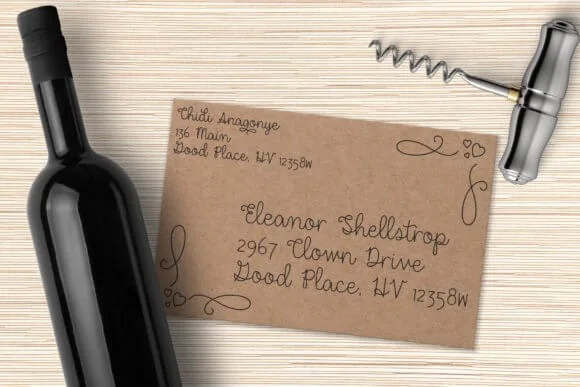 Chidi Anagonye
136 Main
Good Place, HV 12358W
Eleanor Shellstrop
2967 Clown Drive
Good Place, HV 12358W